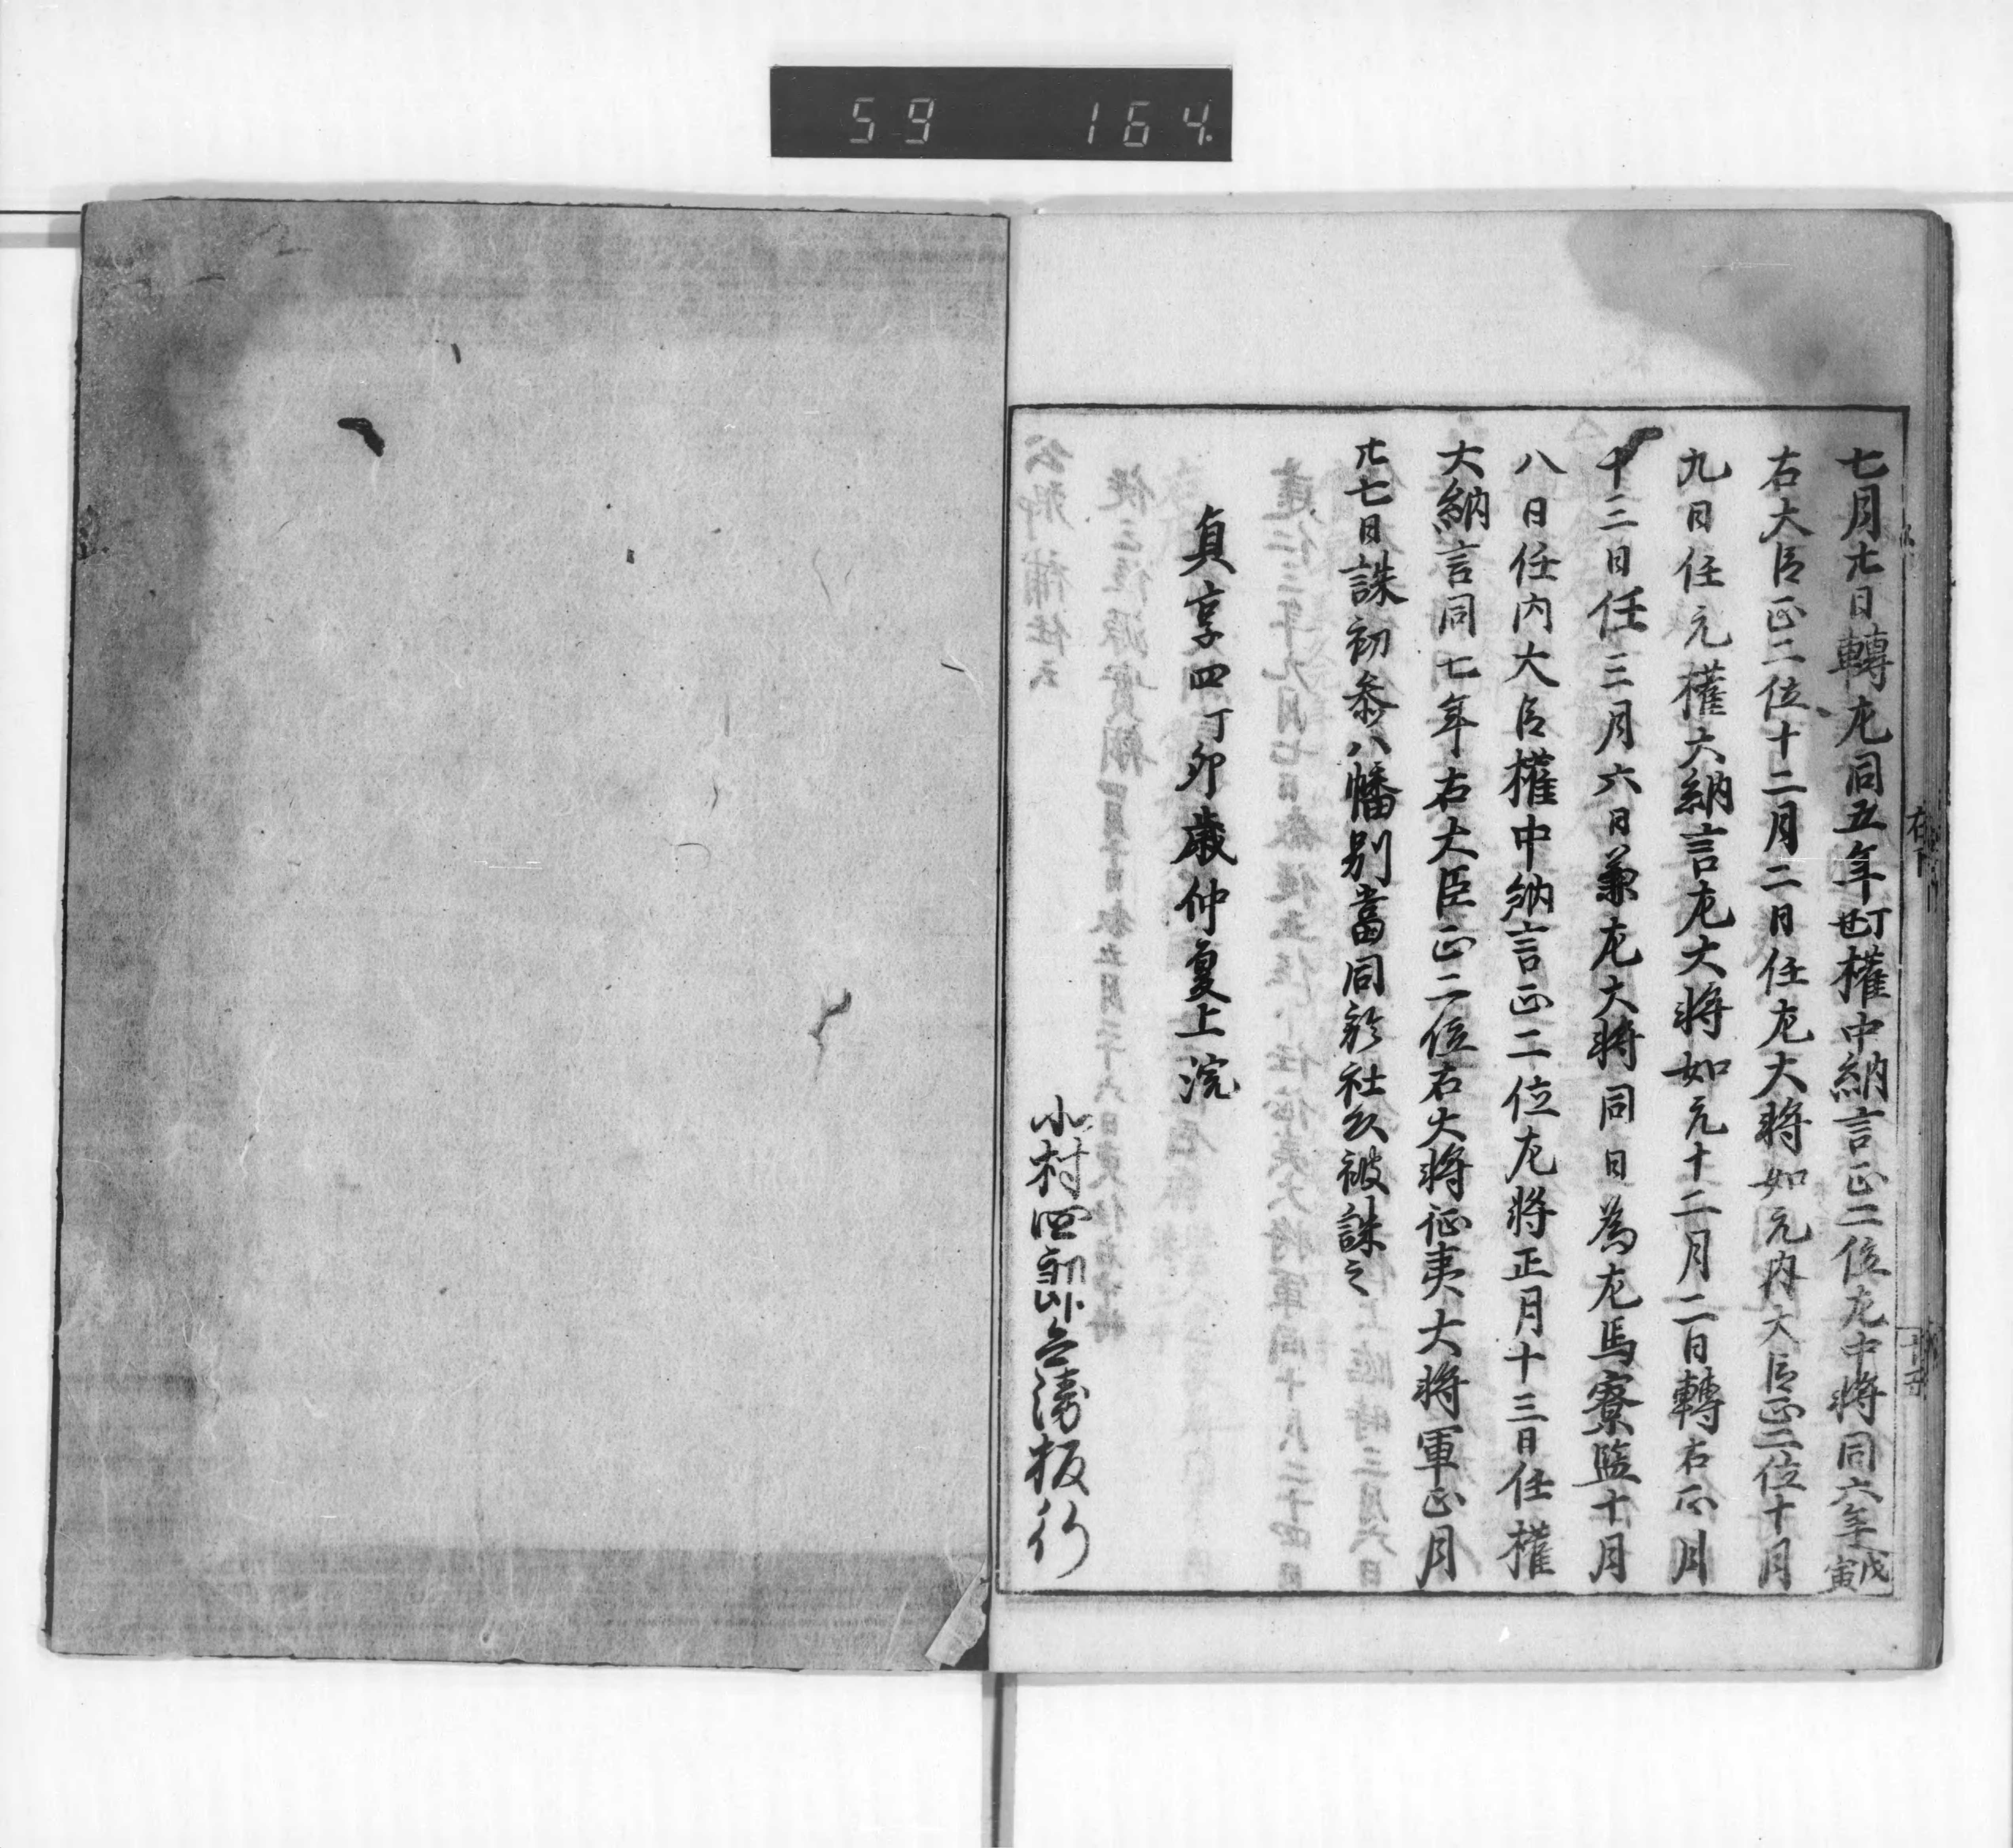 59 164
七月廿日轉左同五年丁丑權中納言正二位左中将同六年戊寅
右大臣正二位十二月二日任左大将如元内大臣正二位十月
九日任元權大納言左大将如元十二月二日轉右正月
十三日任三月六日兼左大将同日為左馬寮監十月
八日任内大臣權中納言正二位左将正月十三日任權
大納言同七年右大臣正二位右大将征夷大将軍正月
廿七日誅初参八幡別當同於社頭被誅之
貞享四丁卯歳仲夏上浣
小村四郎兵衛板行